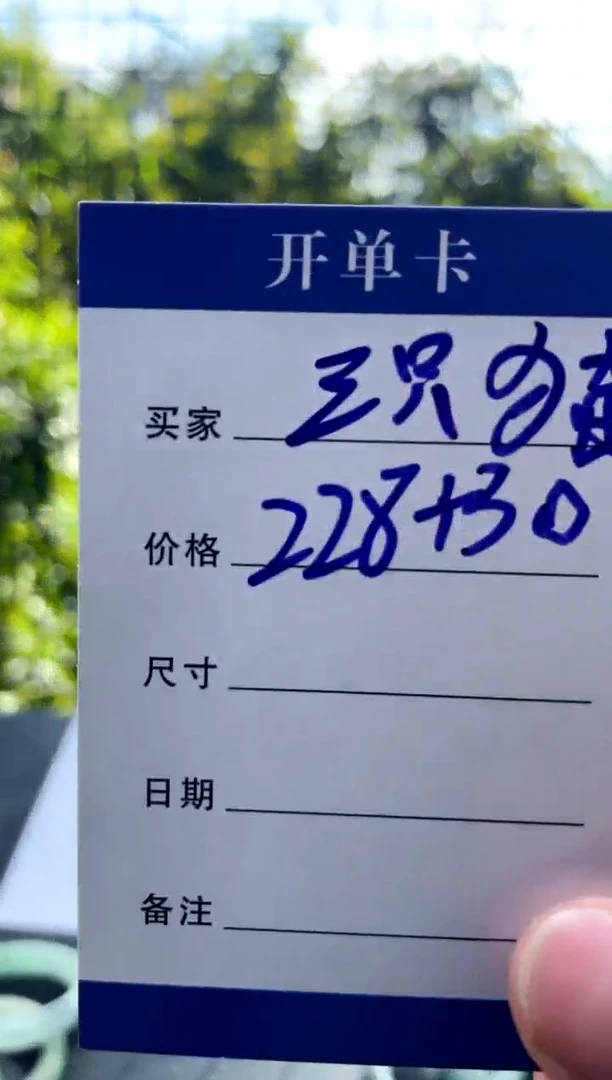 开单卡
买家 三只
价格 228+30
尺寸
日期
备注